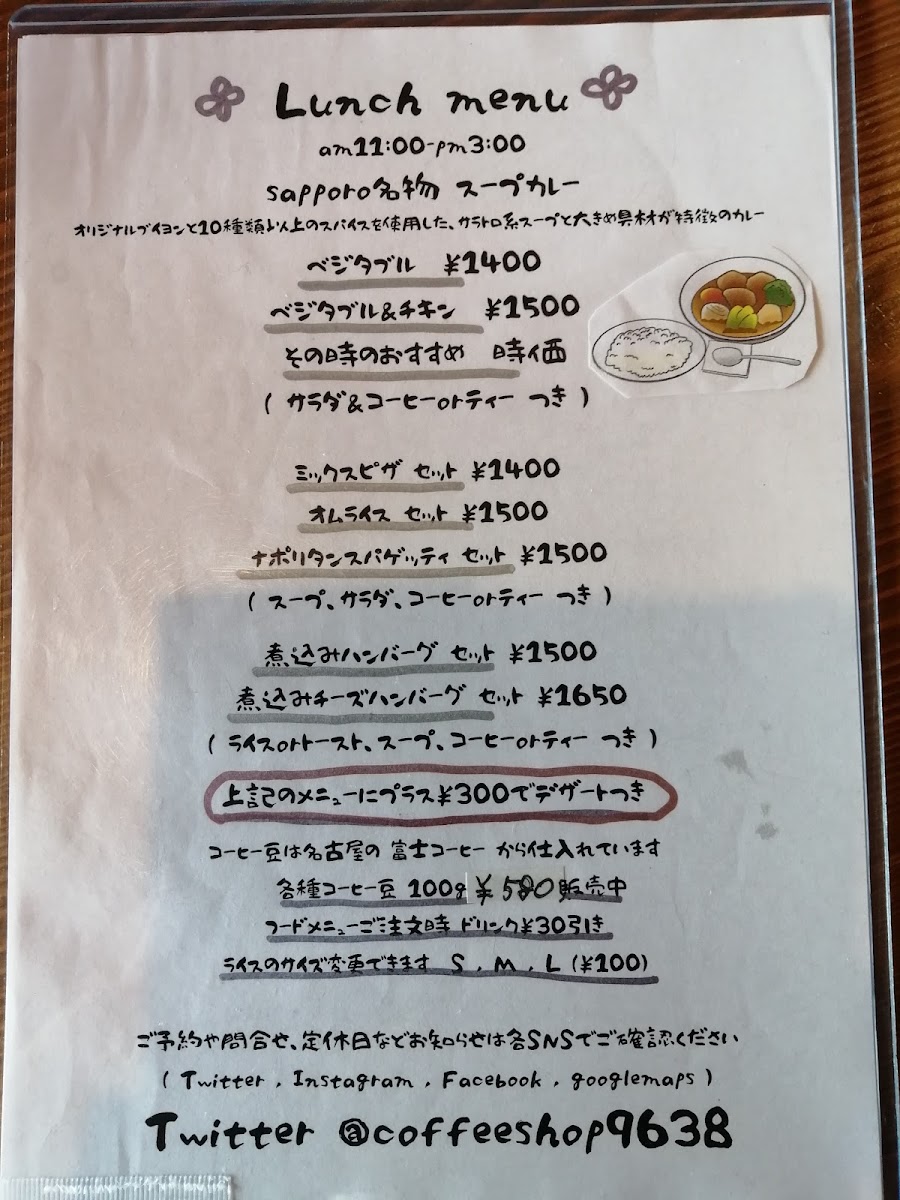 Lunch menu
am11:00-pm3:00
sapporo名物 スープカレー
オリジナルブイヨンと10種類以上のスパイスを使用した、サラトロ系スープと大きめ具材が特徴のカレー
ベジタブル ¥1400
ベジタブル&チキン ¥1500
その時のおすすめ 時価
( サラダ&コーヒーorティー つき )
ミックスピザ セット ¥1400
オムライス セット ¥1500
ナポリタンスパゲッティ セット ¥1500
( スープ、サラダ、コーヒーorティー つき )
煮込みハンバーグ セット ¥1500
煮込みチーズハンバーグ セット ¥1650
( ライスorトースト、スープ、コーヒーorティー つき )
上記のメニューにプラス¥300でデザートつき
コーヒー豆は名古屋の 富士コーヒー から仕入れています
各種コーヒー豆 100g ¥580 販売中
フードメニューご注文時 ドリンク¥30引き
ライスのサイズ変更できます S , M , L (¥100)
ご予約や問合せ、定休日などお知らせは各SNSでご確認ください
( Twitter , Instagram , Facebook , googlemaps )
Twitter @coffeeshop9638